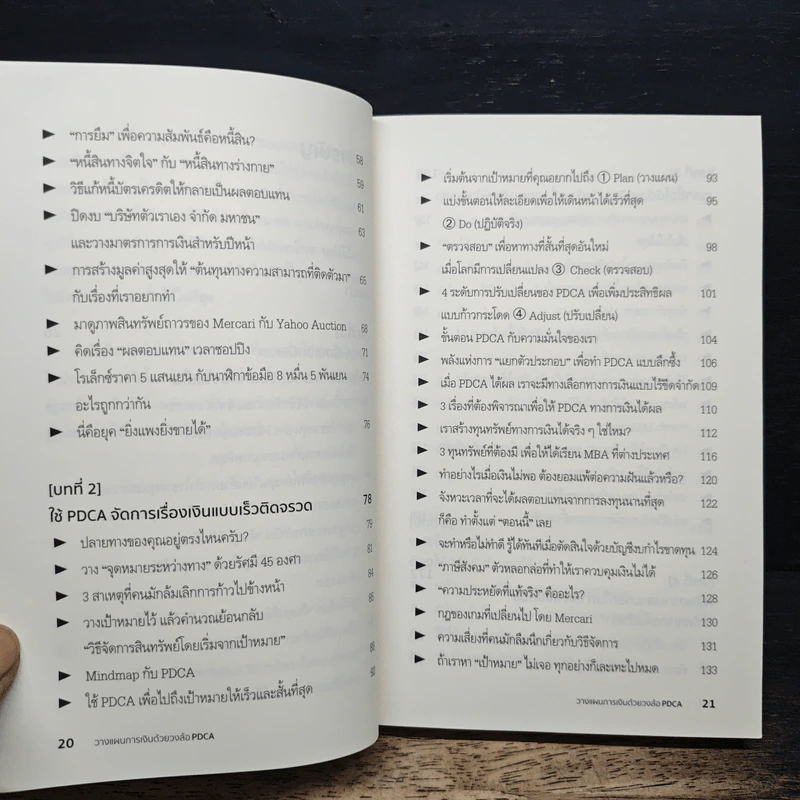 ► "การยืม" เพื่อความสัมพันธ์คือหนี้สิน? 58
► "หนี้สินทางจิตใจ" กับ "หนี้สินทางร่างกาย" 59
► วิธีแก้หนี้บัตรเครดิตให้กลายเป็นผลตอบแทน 61
► ปิดงบ "บริษัทตัวเราเอง จำกัด มหาชน" 63
และวางมาตรการการเงินสำหรับปีหน้า
► การสร้างมูลค่าสูงสุดให้ "ต้นทุนทางความสามารถที่ติดตัวมา" 65
กับเรื่องที่เราอยากทำ
► มาดูภาพสินทรัพย์ถาวรของ Mercari กับ Yahoo Auction 68
► คิดเรื่อง "ผลตอบแทน" เวลาชอปปิง 71
► โรเล็กซ์ราคา 5 แสนเยน กับนาฬิกาข้อมือ 8 หมื่น 5 พันเยน 74
อะไรถูกกว่ากัน
► นี่คือยุค "ยิ่งแพงยิ่งขายได้" 76
[บทที่ 2]
ใช้ PDCA จัดการเรื่องเงินแบบเร็วติดจรวด 78
► ปลายทางของคุณอยู่ตรงไหนครับ? 79
► วาง "จุดหมายระหว่างทาง" ด้วยรัศมี 45 องศา 81
► 3 สาเหตุที่คนมักล้มเลิกการก้าวไปข้างหน้า 84
► วางเป้าหมายไว้ แล้วคำนวณย้อนกลับ 85
"วิธีจัดการสินทรัพย์โดยเริ่มจากเป้าหมาย"
► Mindmap กับ PDCA
► ใช้ PDCA เพื่อไปถึงเป้าหมายให้เร็วและสั้นที่สุด
20 วางแผนการเงินด้วยวงล้อ PDCA
► เริ่มต้นจากเป้าหมายที่คุณอยากไปถึง ① Plan (วางแผน) 93
► แบ่งขั้นตอนให้ละเอียดเพื่อให้เดินหน้าได้เร็วที่สุด 95
② Do (ปฏิบัติจริง)
► "ตรวจสอบ" เพื่อหาทางที่สั้นที่สุดอันใหม่ 98
เมื่อโลกมีการเปลี่ยนแปลง ③ Check (ตรวจสอบ)
► 4 ระดับการปรับเปลี่ยนของ PDCA เพื่อเพิ่มประสิทธิผล 101
แบบก้าวกระโดด ④ Adjust (ปรับเปลี่ยน)
► ขั้นตอน PDCA กับความมั่นใจของเรา 104
► พลังแห่งการ "แยกตัวประกอบ" เพื่อทำ PDCA แบบลึกซึ้ง 106
► เมื่อ PDCA ได้ผล เราจะมีทางเลือกทางการเงินแบบไร้ขีดจำกัด 109
► 3 เรื่องที่ต้องพิจารณาเพื่อให้ PDCA ทางการเงินได้ผล 110
► เราสร้างทุนทรัพย์ทางการเงินได้จริง ๆ ใช่ไหม? 112
► 3 ทุนทรัพย์ที่ต้องมี เพื่อให้ได้เรียน MBA ที่ต่างประเทศ 116
► ทำอย่างไรเมื่อเงินไม่พอ ต้องยอมแพ้ต่อความฝันแล้วหรือ? 120
► จังหวะเวลาที่จะได้ผลตอบแทนจากการลงทุนนานที่สุด 122
ก็คือ ทำตั้งแต่ "ตอนนี้" เลย
► จะทำหรือไม่ทำดี รู้ได้ทันทีเมื่อตัดสินใจด้วยบัญชีงบกำไรขาดทุน 124
► "ภาษีสังคม" ตัวหลอกล่อที่ทำให้เราควบคุมเงินไม่ได้ 126
► "ความประหยัดที่แท้จริง" คืออะไร? 128
► กฎของเกมที่เปลี่ยนไป โดย Mercari 130
► ความเสี่ยงที่คนมักลืมนึกเกี่ยวกับวิธีจัดการ 131
► ถ้าเราหา "เป้าหมาย" ไม่เจอ ทุกอย่างก็เละเทะไปหมด 133
วางแผนการเงินด้วยวงล้อ PDCA 21